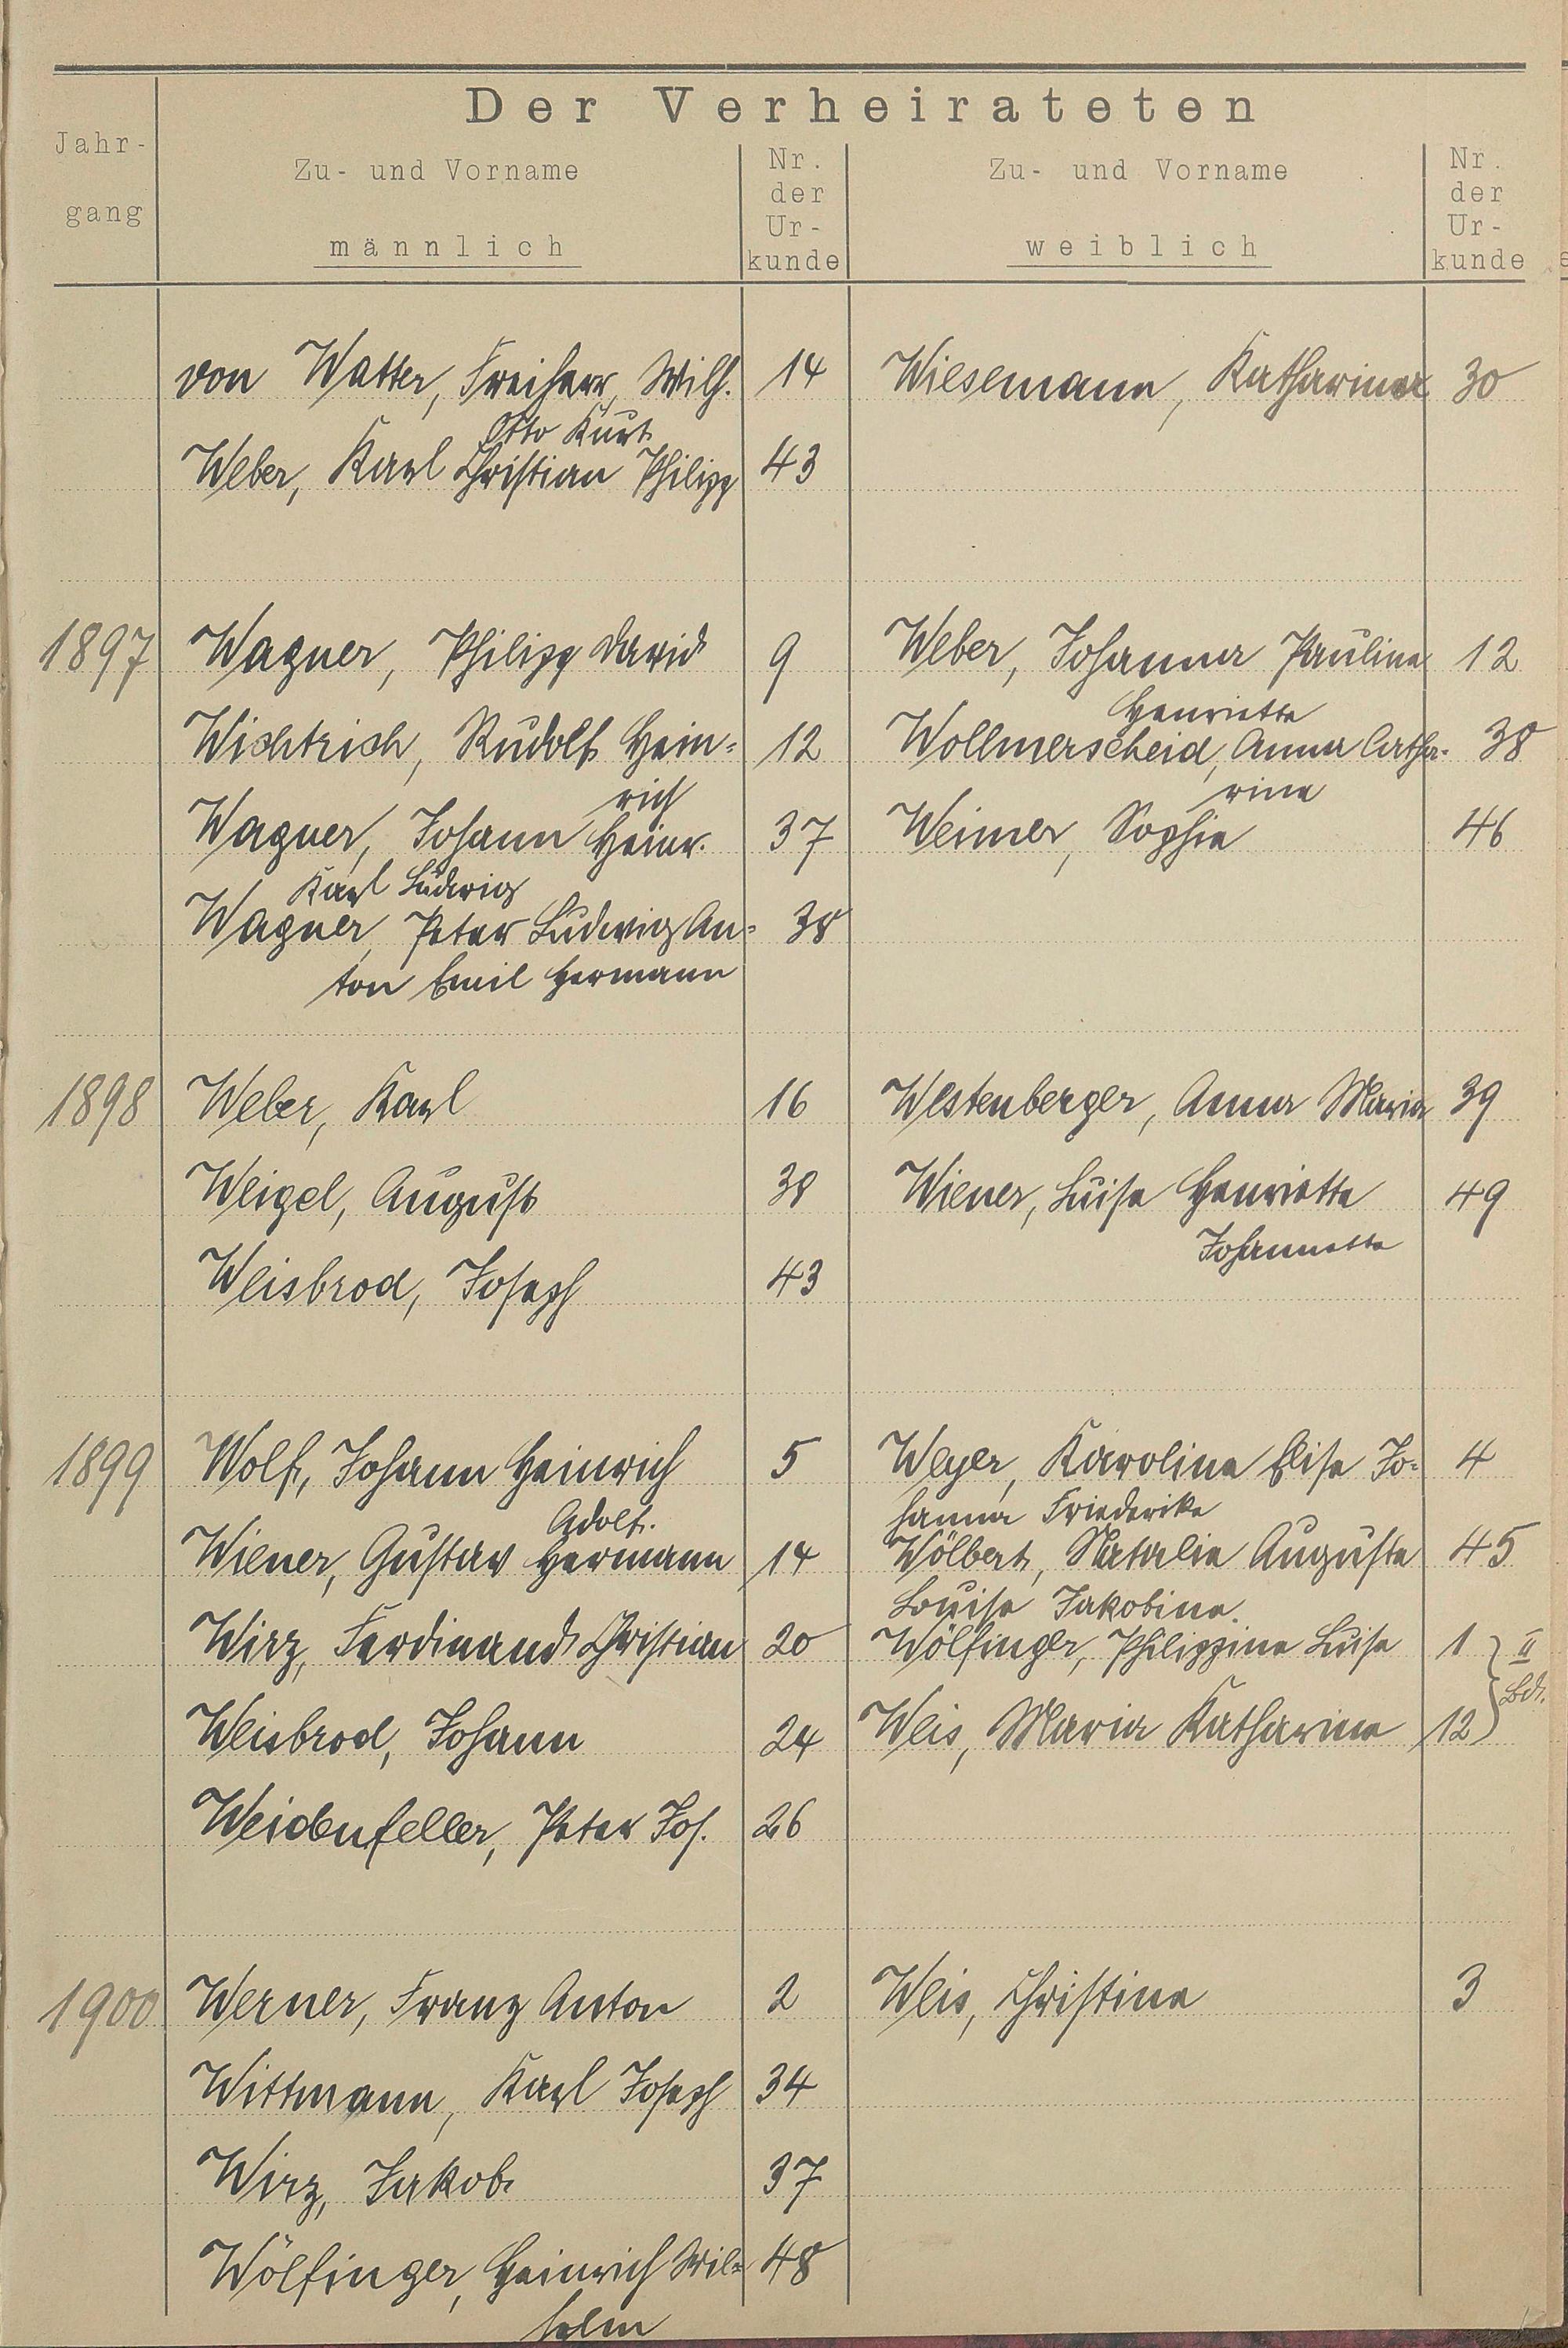 Der Verheirateten
Jahr-
gang
Zu- und Vorname
männlich
Nr.
der
Ur-
kunde
Zu- und Vorname
weiblich
Nr.
der
Ur-
kunde
von Watter, Freiherr, Wilh. 14 Wiesemann, Katharina 30
Otto Kurt
Weber, Karl Christian Philipp 43
1897 Wagner, Philipp David 9 Weber, Johanna Pauline 12
Henriette
Wichtrich, Rudolf Hein= 12 Wollmerscheid, Anna Catha- 38
rich rine
Wagner, Johann Heinr. 37 Weimer, Sophie 46
Karl Ludwig
Wagner, Peter Ludwig An= 38
ton Emil Hermann
1898 Weber, Karl 16 Westenberger, Anna Maria 39
Weigel, August 38 Wiener, Luise Henriette 49
Johannette
Weisbrod, Joseph 43
1899 Wolf, Johann Heinrich 5 Weyer, Karoline Elise Jo= 4
Adolf. hanna Friederike
Wiener, Gustav Hermann 14 Wölbert, Natalie Auguste 45
Louise Jakobine.
Wirz, Ferdinand Christian 20 Wölfinger, Philippine Luise 1 } II
Bd.
Weisbrod, Johann 24 Weis, Maria Katharina 12
Weidenfeller, Peter Jos. 26
1900 Werner, Franz Anton 2 Weis, Christina 3
Wittmann, Karl Joseph 34
Wirz, Jakob 37
Wölfinger, Heinrich Wil= 48
helm